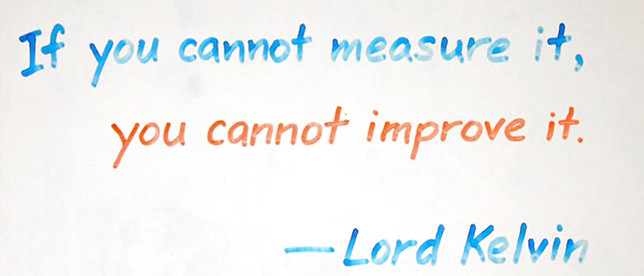 If you cannot measure it,
you cannot improve it.
—Lord Kelvin